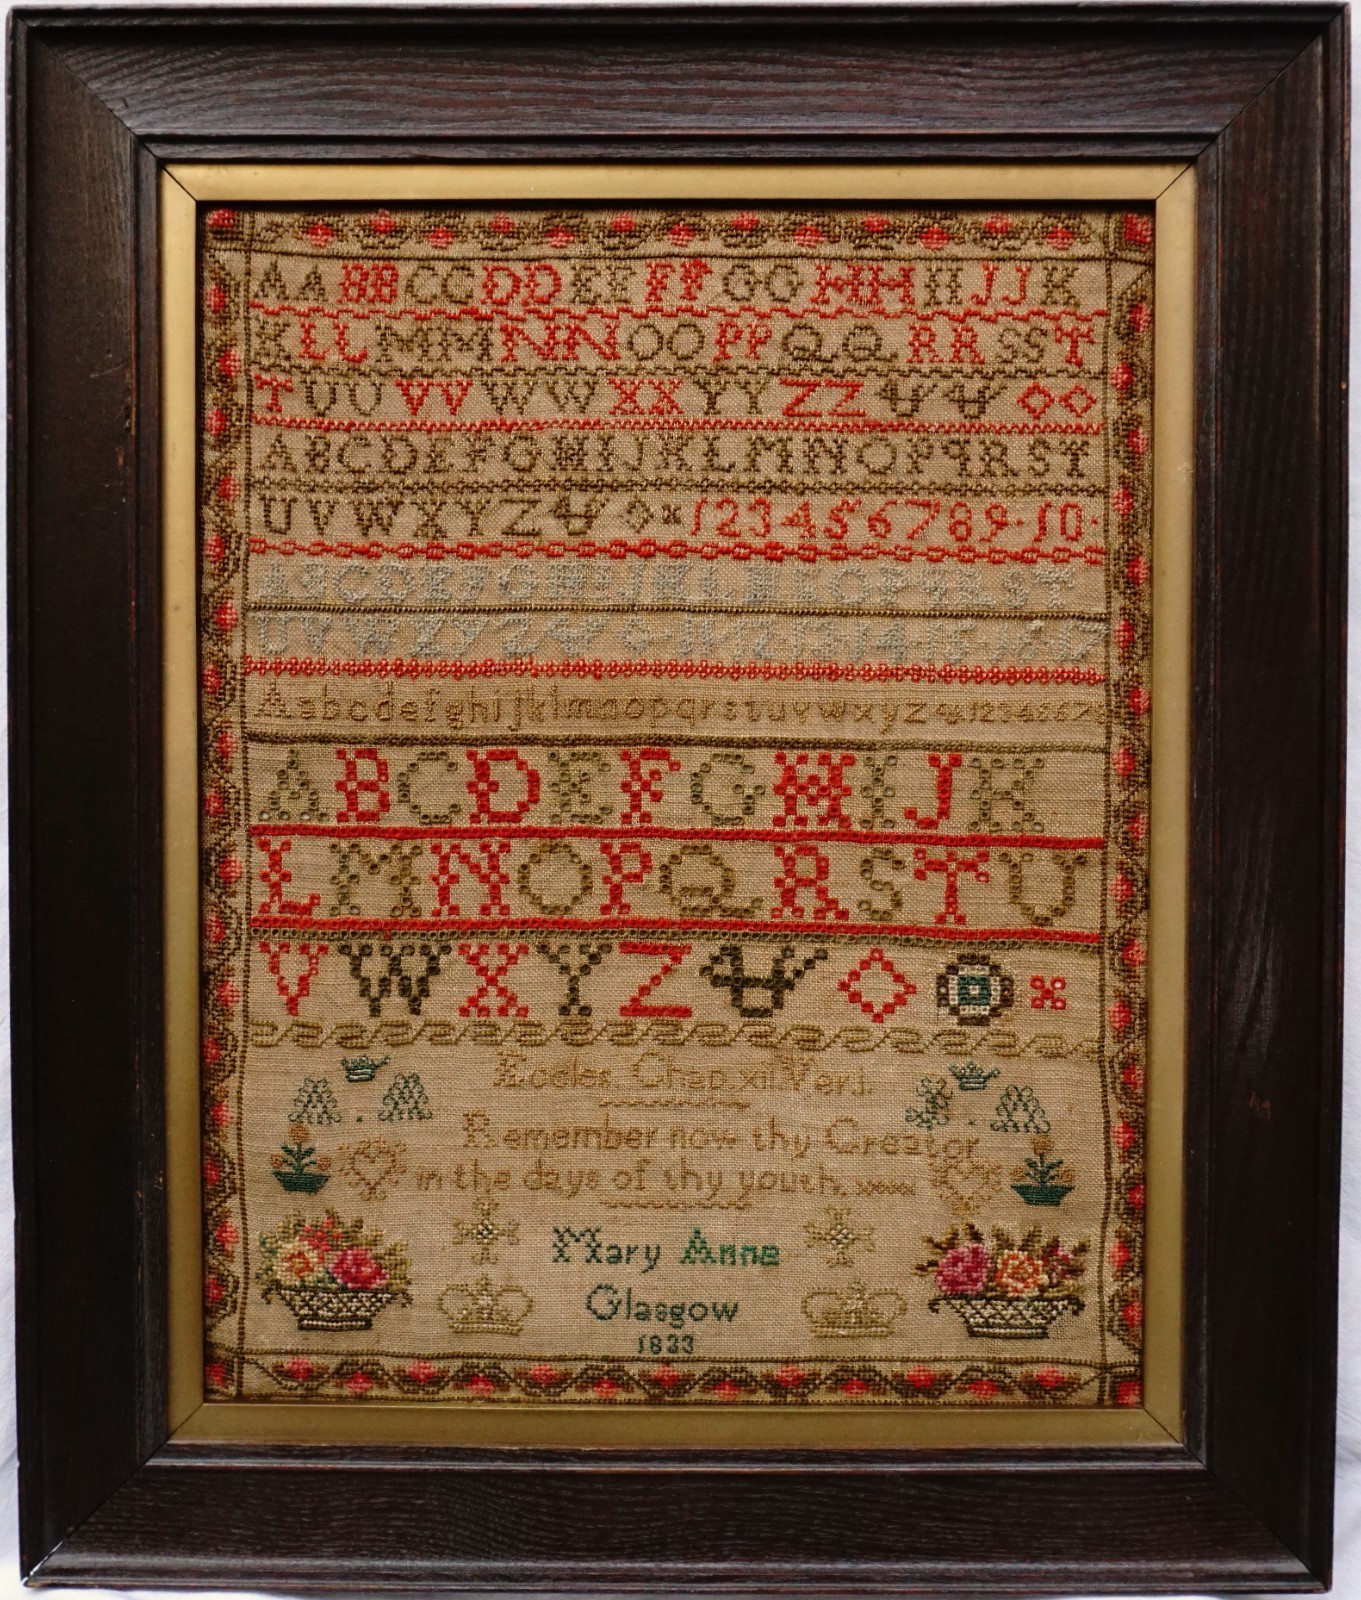 AABBCCDDEEFFGGHHIIJJK
KLLMMNNOOPPQQRRSST
TUUVVWWXXYYZZ&&
ABCDEFGHIJKLMNOPqRST
UVWXYZ& 123456789·10·
ABCDEFGHIJKLMNOPqRST
UVWXYZ& 11·12·13·14·15·16·17
Aabcdefghijklmnopqrstuvwxyz&12345678
ABCDEFGHIJK
LMNOPQRSTU
VWXYZ&
Eccles. Chap xii. Ver.1.
M.M
Remember now thy Creator
in the days of thy youth.
Mary Anne
Glasgow
1833